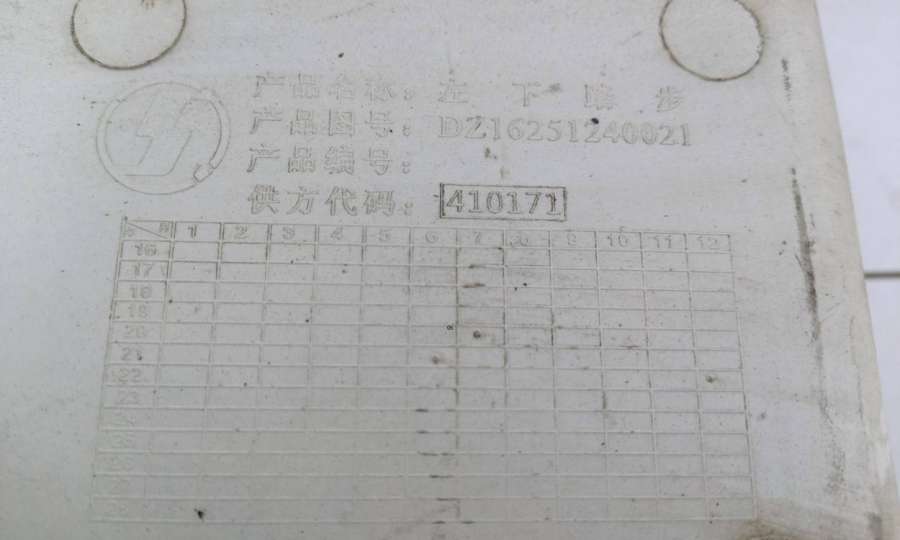 产品名称：左 下 踏 步
产品图号：DZ16251240021
产品编号：
供方代码：410171
年 月 1 2 3 4 5 6 7 8 9 10 11 12
16
17
18
19
20
21
22
23